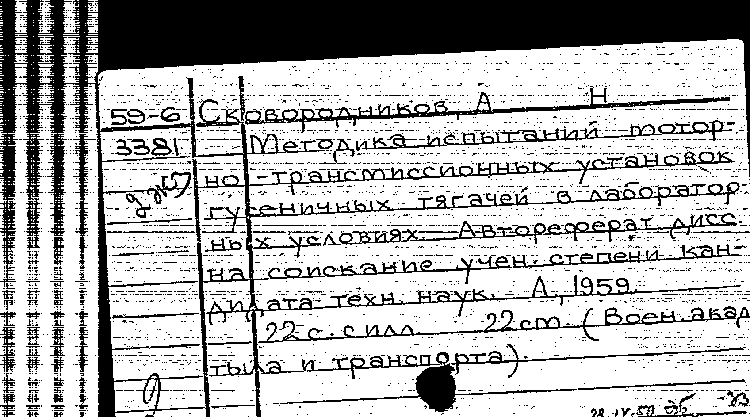 59-6 Сковородников, А Н
3381 Методика испытаний мотор-
но-трансмиссионных установок
гусеничных тягачей в лаборатор-
ных условиях. Автореферат дисс.
на соискание учен. степени кан-
дидата техн. наук. Л., 1959.
22 с. с илл. 22 cm. (Воен. акад
тыла и транспорта).